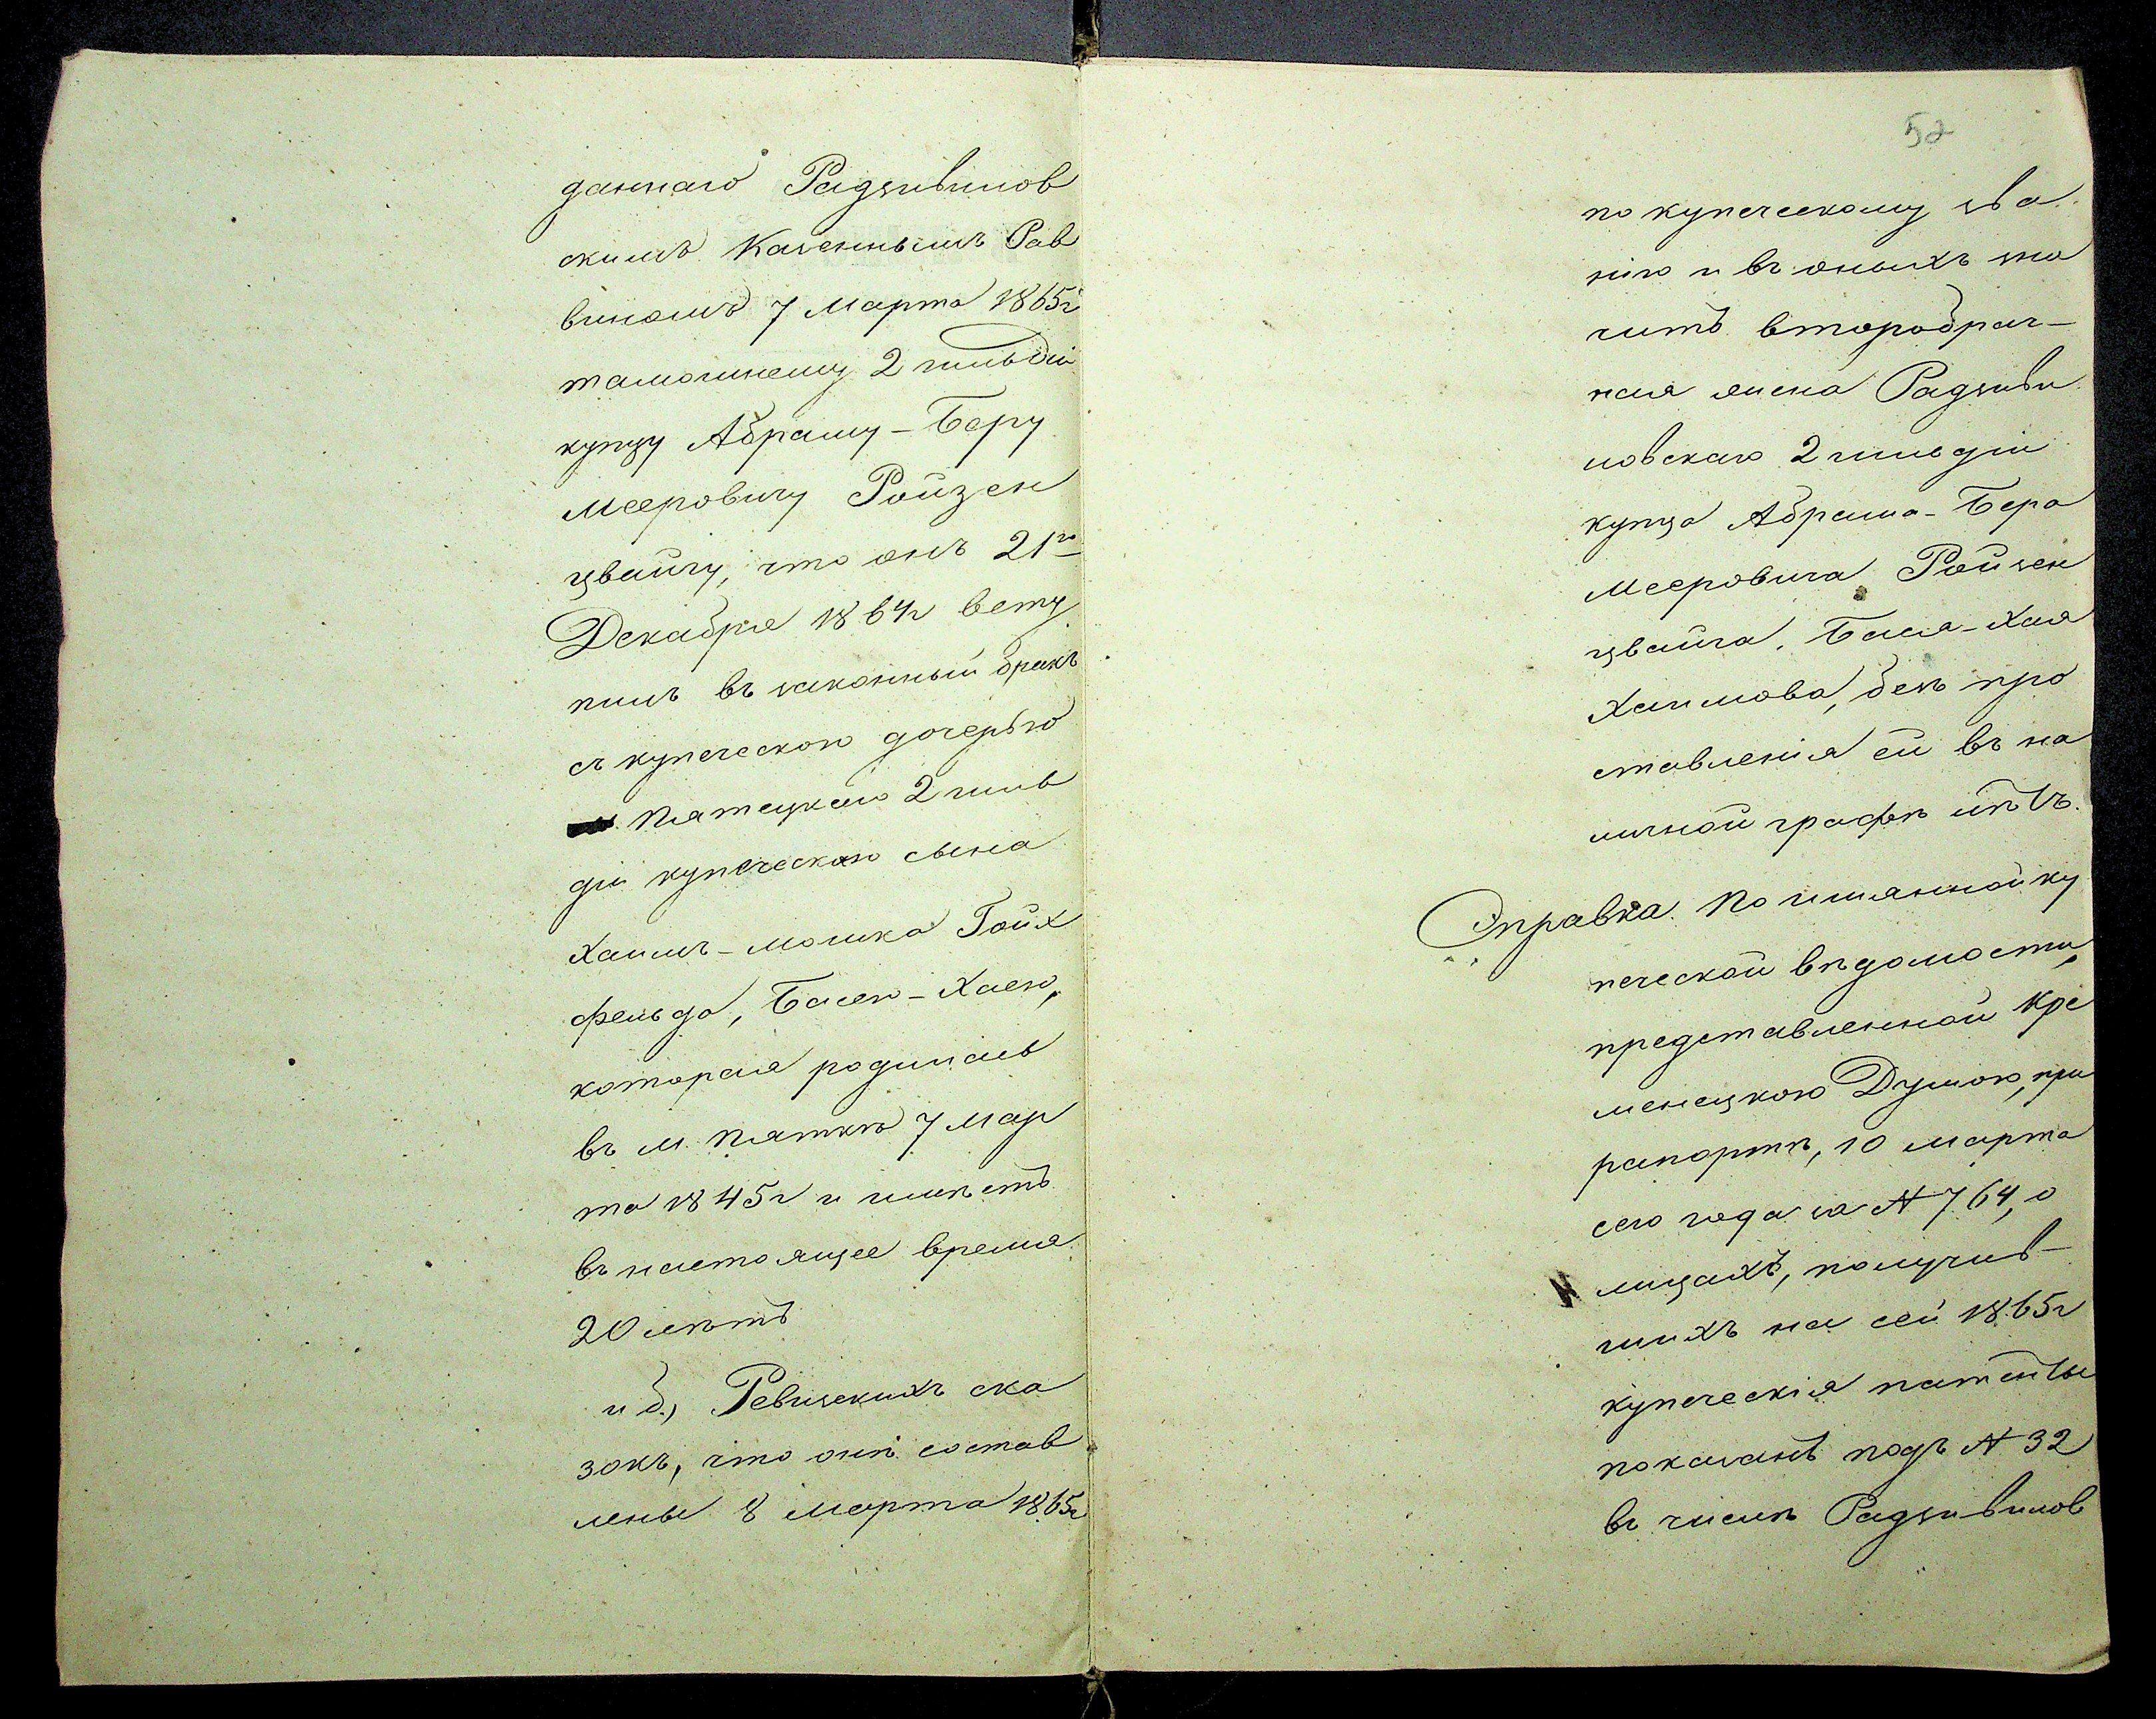 даннаго Радзивилов
скимъ Казеннымъ Рав
виномъ 7 Марта 1865г
тамошнему 2 гильдіи
купцу Абраму-Беру
Мееровичу Ройзен
цвайгу, что онъ 21го
Декабря 1864г всту
пилъ въ законный бракъ
съ купеческою дочерью
Пятецкаго 2 гиль
діи купеческаго сына
Хаимъ-Мошка Гойх
фельда, Басею-Хаею,
которая родилась
въ м. Пяткѣ 7 Мар
та 1845г и имѣетъ
въ настоящее время
20 лѣтъ
и б., Ревизскихъ ска
зокъ, что онѣ состав
лены 8 Марта 1865г
52
по купеческому зва
нію и въ оныхъ зна
читъ второбрач-
ная жена Радзиви
ловскаго 2 гильдіи
купца Абрама-Бера
Мееровича Ройзен
цвайга, Бася-Хая
Хаимова, безъ про
ставленія ей въ на
личной графѣ лѣтъ.
Справка. По имянной ку
печеской вѣдомости,
представленной Кре
менецкою Думою, при
рапортѣ, 10 Марта
сего года за № 764, о
лицахъ, получив-
шихъ на сей 1865г
купеческія патенты
показанъ подъ № 32
въ числѣ Радзивилов